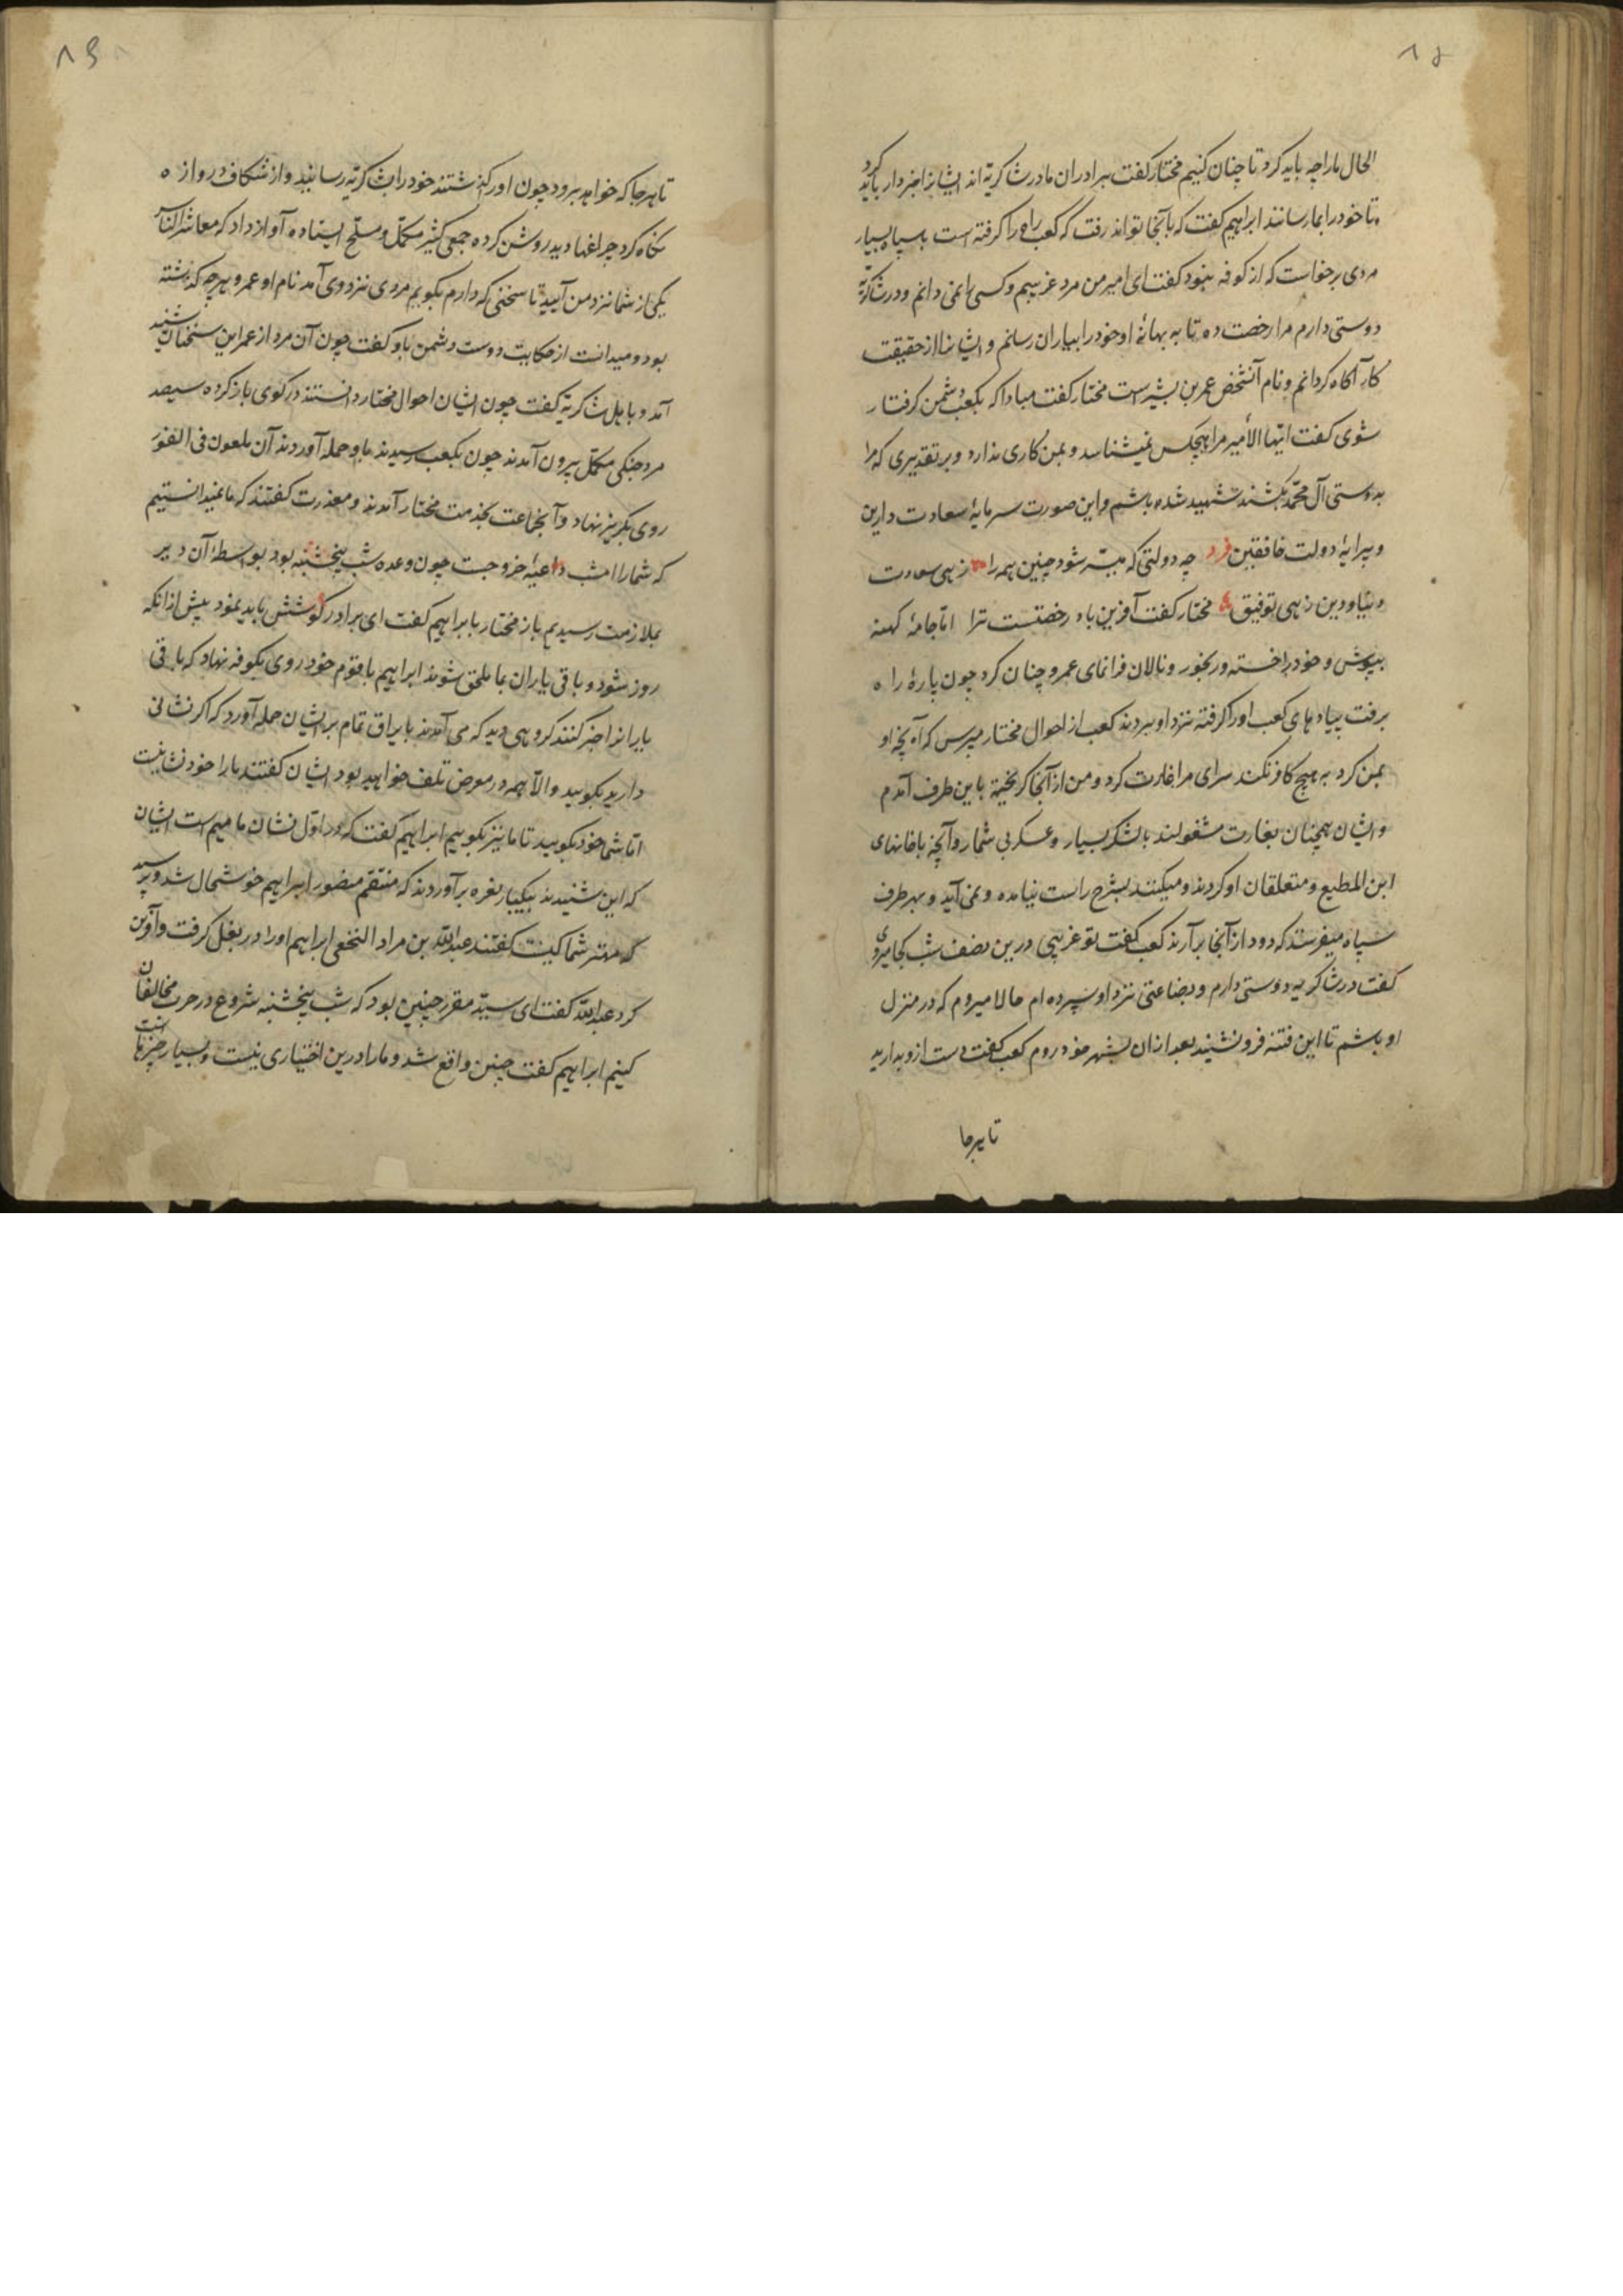 الحال ما را چه باید کرد تا چنان کنیم مختار کفت برادران ما در شاکریه‌اند ایشانرا خبردار باید کرد
تا خود را بما رسانند ابراهیم کفت که بآنجا تواند رفت که کعب راه را کرفته است با سپاه بسیار
مردی برخواست که از کوفه نبود کفت ای امیر من مرد غریبم و کسی مرا نمی دانم و در شاکریه
دوستی دارم مرا رخصت ده تا به بهانهٔ او خود را بیاران رسانم و ایشانرا از حقیقت
کار آکاه کردانم و نام آنشخص عمر بن بشیر است مختار کفت مبادا که بکعب دشمن کرفتار
شوی کفت ایّها الأمیر مرا هیچکس نمیشناسد و بمن کاری ندارد و بر تقدیری که مرا
بدوستی آل محمّد بکشند شهید شده باشم و این صورت سرمایهٔ سعادت دارین
و پیرایهٔ دولت خافقین فرد چه دولتی که میسّر شود چنین همه را زهی سعادت
دنیا و دین زهی توفیق مختار کفت آفرین باد رخصتست ترا امّا جامهٔ کهنه
بپوش و خود را خسته و رنجور و نالان فرانمای عمرو چنان کرد چون پارهٔ راه
برفت پیاده‌های کعب او را کرفته نزد او بردند کعب از احوال مختار پرسید کفت مپرس که آنچه او
بمن کرد به هیچ کافر نکند سرای مرا غارت کرد و من از آنجا کریخته باین طرف آمدم
و ایشان همچنان بغارت مشغولند با لشکر بسیار و عسکر بی شمار و آنچه با خانهای
ابن المطیع و متعلقان او کردند و میکنند بشرح راست نیامده و نمی آید و بهر طرف
سپاه میفرستد که دود از آنجا برآرند کعب کفت تو غریبی درین نصف شب کجا میروی
کفت در شاکریه دوستی دارم و بضاعتی نزد او سپرده ام حالا میروم که در منزل
او باشم تا این فتنه فرونشیند بعد از ان بشهر خود روم کعب کفت دست ازو بدارید
تا بهرجا
تا بهرجا که خواهد برود چون او را کذاشتند خود را بشاکریّه رسانید و از شکاف دروازه
نکاه کرد چراغها دید روشن کرده جمعی کثیر مکمّل و مسلّح ایستاده آواز داد که معاشر الناس
یکی از شما نزد من آیید تا سخنی که دارم بکویم مردی نزد وی آمد نام او عمرو هر چه کذشته
بود و میدانست از حکایت دوست و دشمن باو کفت چون آن مرد از عمر این سخنان شنید
آمد و با اهل شاکریّه کفت چون ایشان احوال مختار دانستند در کوی باز کرده سیصد
مرد جنکی مکمّل بیرون آمدند چون بکعب رسیدند باو حمله آوردند آن ملعون فی الفور
روی بکریز نهاد و آنجماعت بخدمت مختار آمدند و معذرت کفتند که ما نمیدانستیم
که شما را امشب داعیهٔ خروجست چون وعده شب پنجشنبه بود بواسطهٔ آن دیر
بملازمت رسیدیم باز مختار با ابراهیم کفت ای برادر کوشش باید نمود پیش از انکه
روز شود و باقی یاران بما ملحق شوند ابراهیم با قوم خود روی بکوفه نهاد که باقی
یارانرا خبر کنند کروهی دید که می آمدند با یراق تمام بر ایشان حمله آورد که اکر نشانی
دارید بکویید و الّا همه در معرض تلف خواهید بود ایشان کفتند ما را خود نشانیست
امّا شما خود بکویید تا ما نیز بکوییم ابراهیم کفت که در اوّل نشان ما میم است ایشان
که این شنیدند بیکبار نعره برآوردند که منتقم منصور ابراهیم خوشحال شد و پرسید
که مهتر شما کیست کفتند عبداللّه بن مراد النخعی ابراهیم او را در بغل کرفت و آفرین
کرد عبداللّه کفت ای سیّد مقرر چنین بود که شب پنجشنبه شروع در حرب مخالفان
کنیم ابراهیم کفت چنین واقع شد و ما را درین اختیاری نیست و بسیار چیزها است